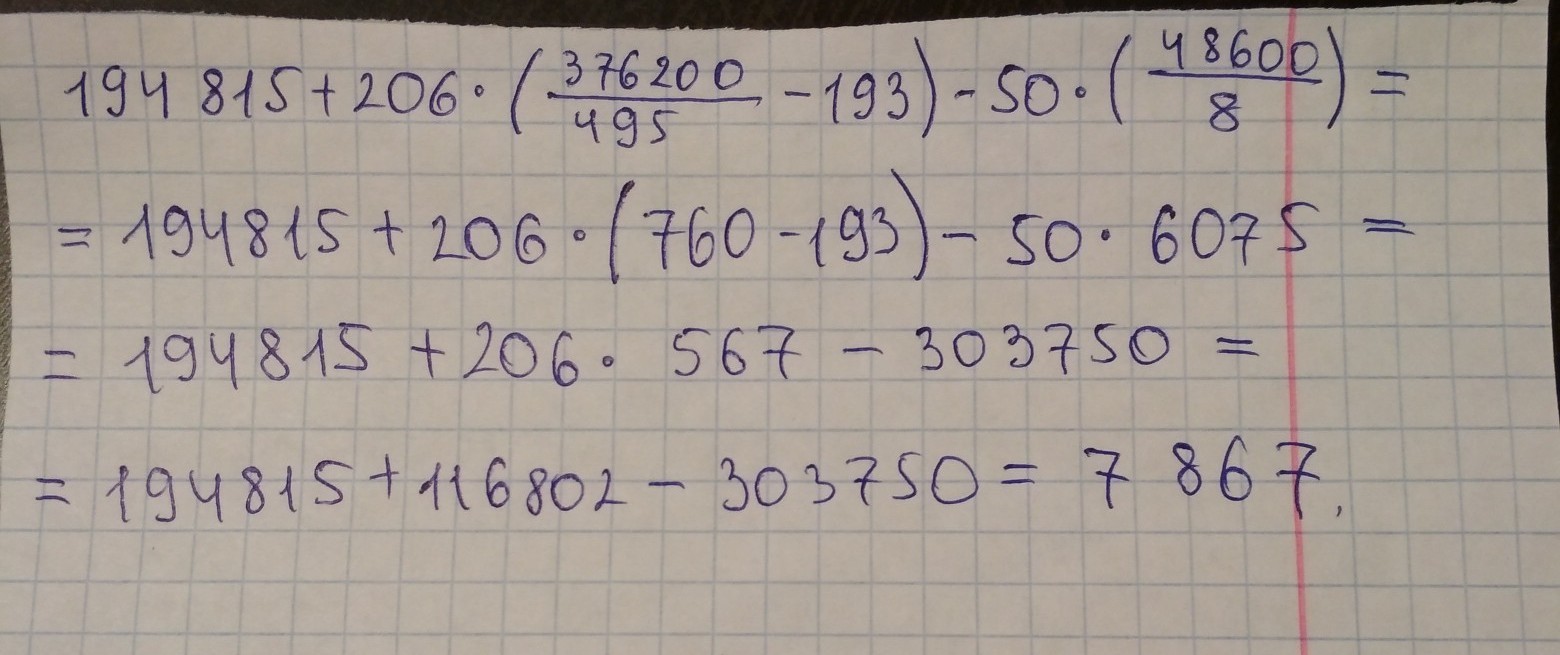 194 815 + 206 · (376200/495 - 193) - 50 · (48600/8) =
= 194815 + 206 · (760 - 193) - 50 · 6075 =
= 194815 + 206 · 567 - 303750 =
= 194815 + 116802 - 303750 = 7 867.